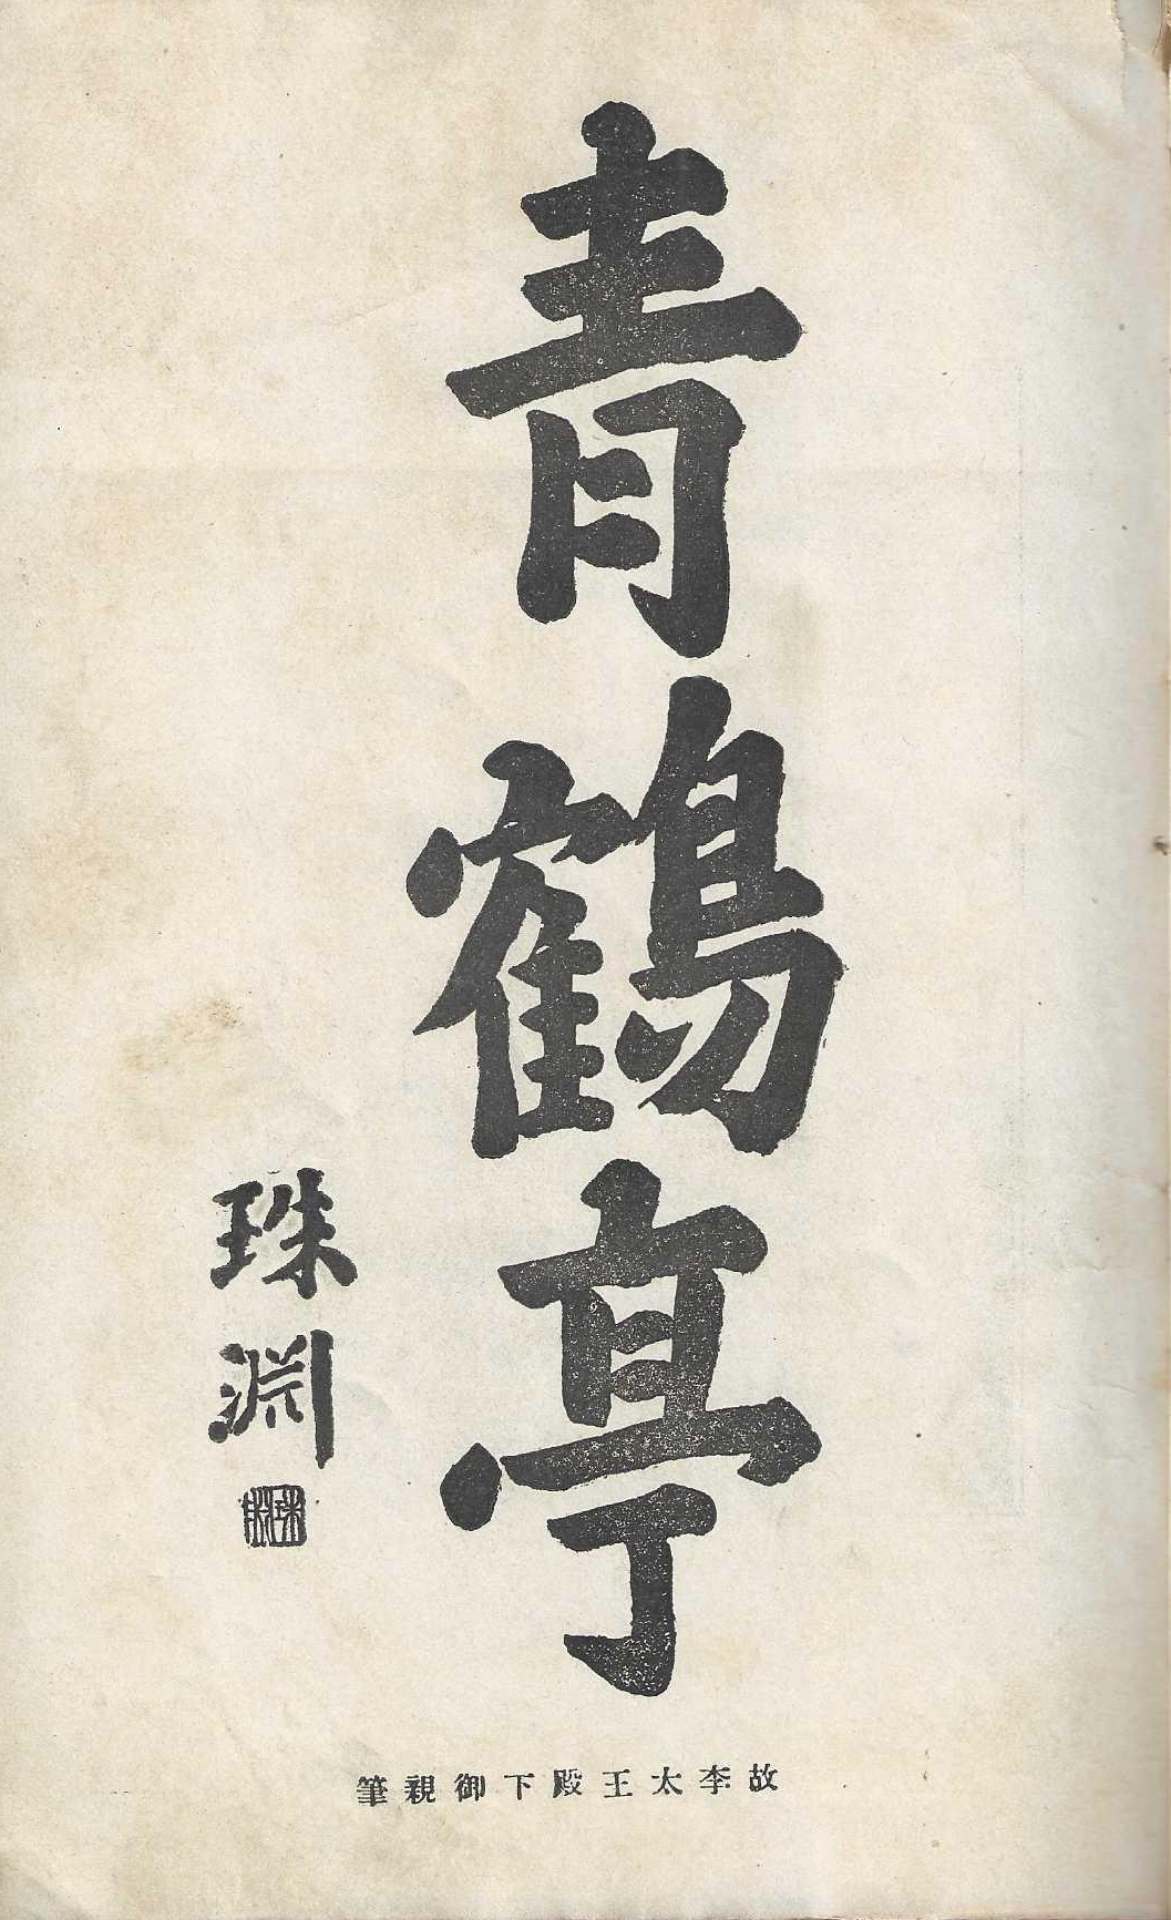 青鶴亭
珠淵
珠淵
故李太王殿下御親筆